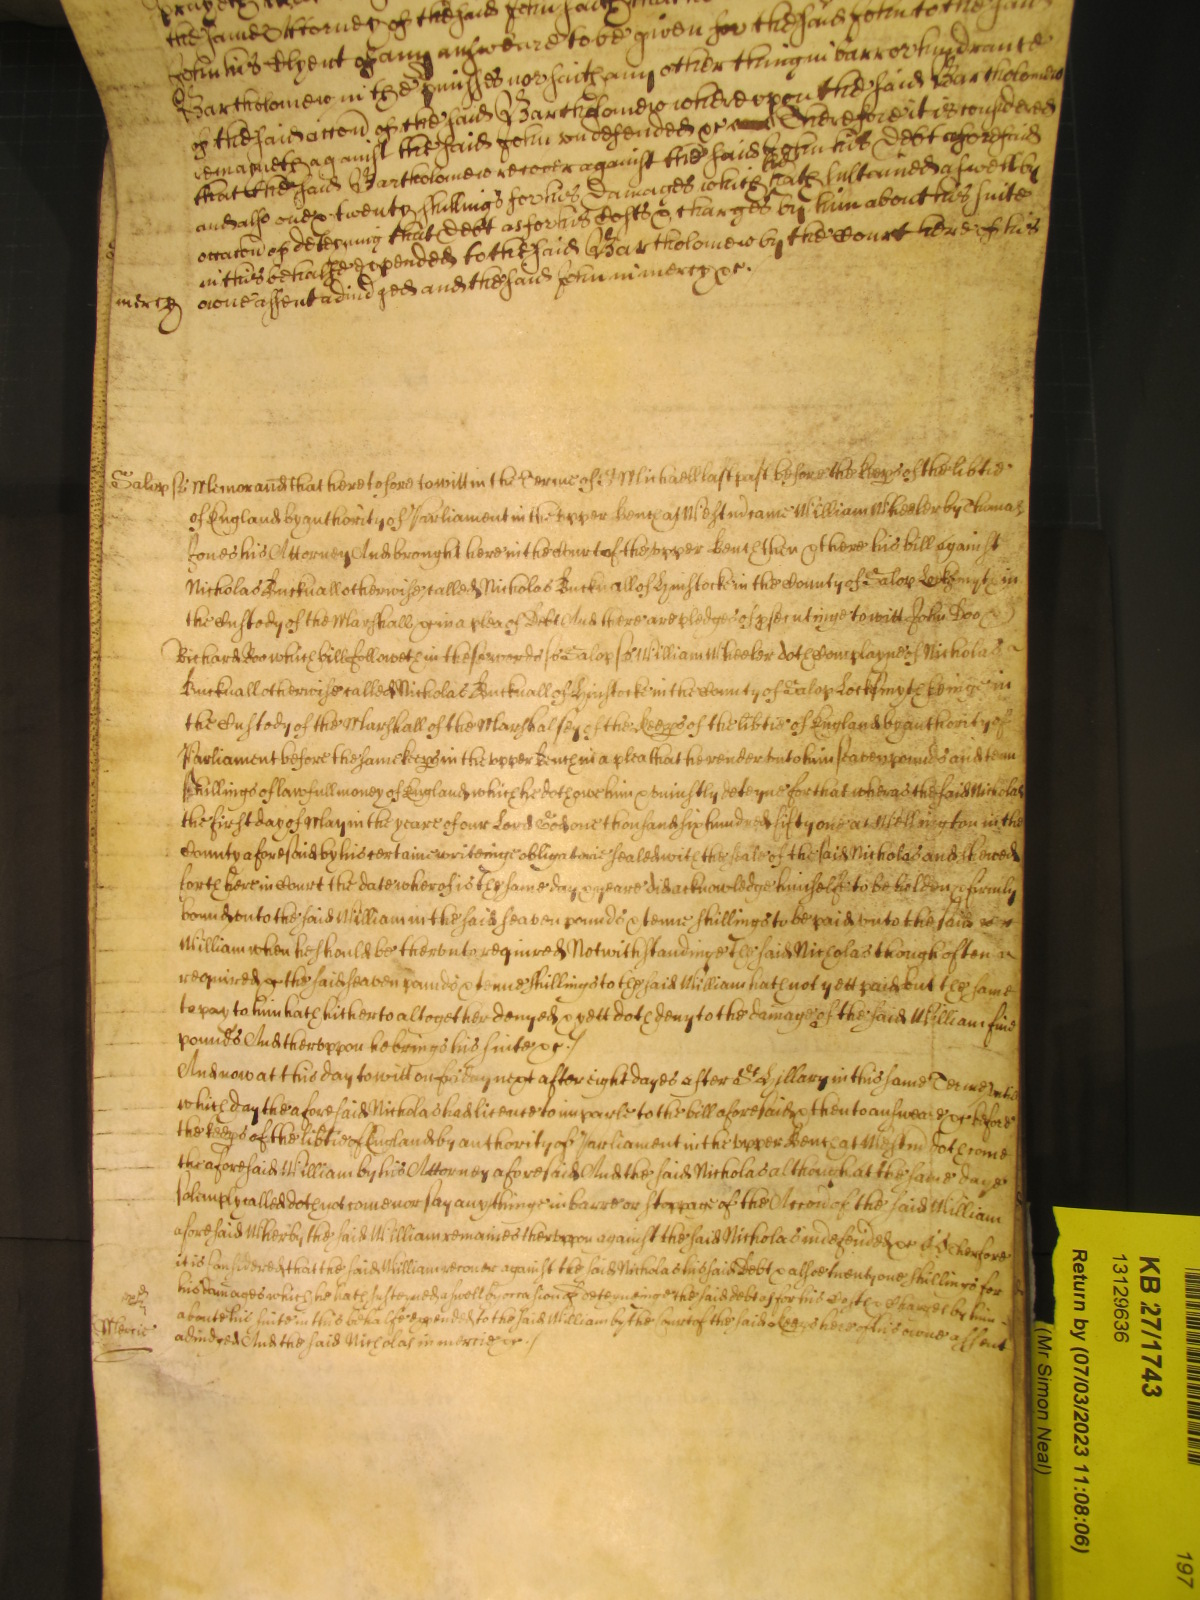 the same Attorney of the said John saith
John his Clyent of any answeare to be given for the said John to the said
Bartholomew in the pmisses nor saith any other thing in barr or hindrance
of the said accon of the said Bartholomew whereupon the said Bartholomew
remayneth against the said John undefended &c Therefore it is considered
that the said Bartholomew recover against the said John his Debt aforesaid
and also one & twenty shillings for his Damages which he hath susteined aswell by
occacon of deteyning that Debt as for his Costs & charges by him about his suite
in this behalfe expended to the said Bartholomew by the Court here of his
mercy owne assent adiudged and the said John in mercy &c.
Salop ss Memorand that heretofore to witt in the Terme of St Michaell last past before the keeps of the libtie
of England by authority of Parliament in the upper bench at Westm came William Wheeler by Thomas
Jones his Attorney And brought here in the Court of the upper bench then & there his bill against
Nicholas Bucknall otherwise called Nicholas Bucknall of Hinstocke in the County of Salop Locksmyth in
the Custody of the Marshall &c in a plea of Debt And there are pledges of psecutinge to witt John Doo &
Richard Roo which bill followeth in these words ss Salop ss William Wheeler doth Complayne of Nicholas
Bucknall otherwise called Nicholas Bucknall of Hinstocke in the County of Salop Locksmyth beinge in
the Custody of the Marshall of the Marshalsey of the keeps of the libtie of England by authority of
Parliament before the same keeps in the upper bench in a plea that he render unto him seaven pounds and tenn
shillings of lawfull money of England which he doth owe him & uniustly deteyne for that wheras the said Nicholas
the first day of May in the yeare of our Lord God one thousand six hundred fifty one at Wellington in the
County aforesaid by his certaine writeinge obligatorie sealed with the seale of the said Nicholas and shewed
forth here in Court the date wherof is the same day & yeare did acknowledge himselfe to be holden & firmly
bound unto the said William in the said seaven pounds & tenne shillings to be paid unto the said
William when he should be therunto required Notwithstandinge the said Nicholas though often
required &c the said seaven pounds & tenne shillings to the said William hath not yett paid but the same
to pay to him hath hitherto altogether denyed & yett doth deny to the damage of the said William five
pounds And therupon he brings his suite &c./
And now at this day to witt on friday next after eight dayes after St Hillary in this same Terme untill
which day the aforesaid Nicholas had licence to imparle to the bill aforesaid & then to answeare &c before
the keeps of the libtie of England by authority of Parliament in the upper bench at Westm doth come
the aforesaid William by his Attorney aforesaid And the said Nicholas although at the same daye
solemply called doth not come nor say anythinge in barre or stoppage of the Accon of the said William
aforesaid Wherby the said William remaines therupon against the said Nicholas undefended &c Therfore
it is considered that the said William recover against the said Nicholas his said Debt & alsoe twenty one shillings for
his damages which he hath susteined aswell by occasion of deteyninge the said debt as for his Costs & charges by him
about his suite in this behalfe expended to the said William by the Court of the said keeps here of his owne assent
Mercie adiudged And the said Nicholas in mercie &c./
KB 27/1743
13129636
Return by (07/03/2023 11:08:06)
(Mr Simon Neal)
197